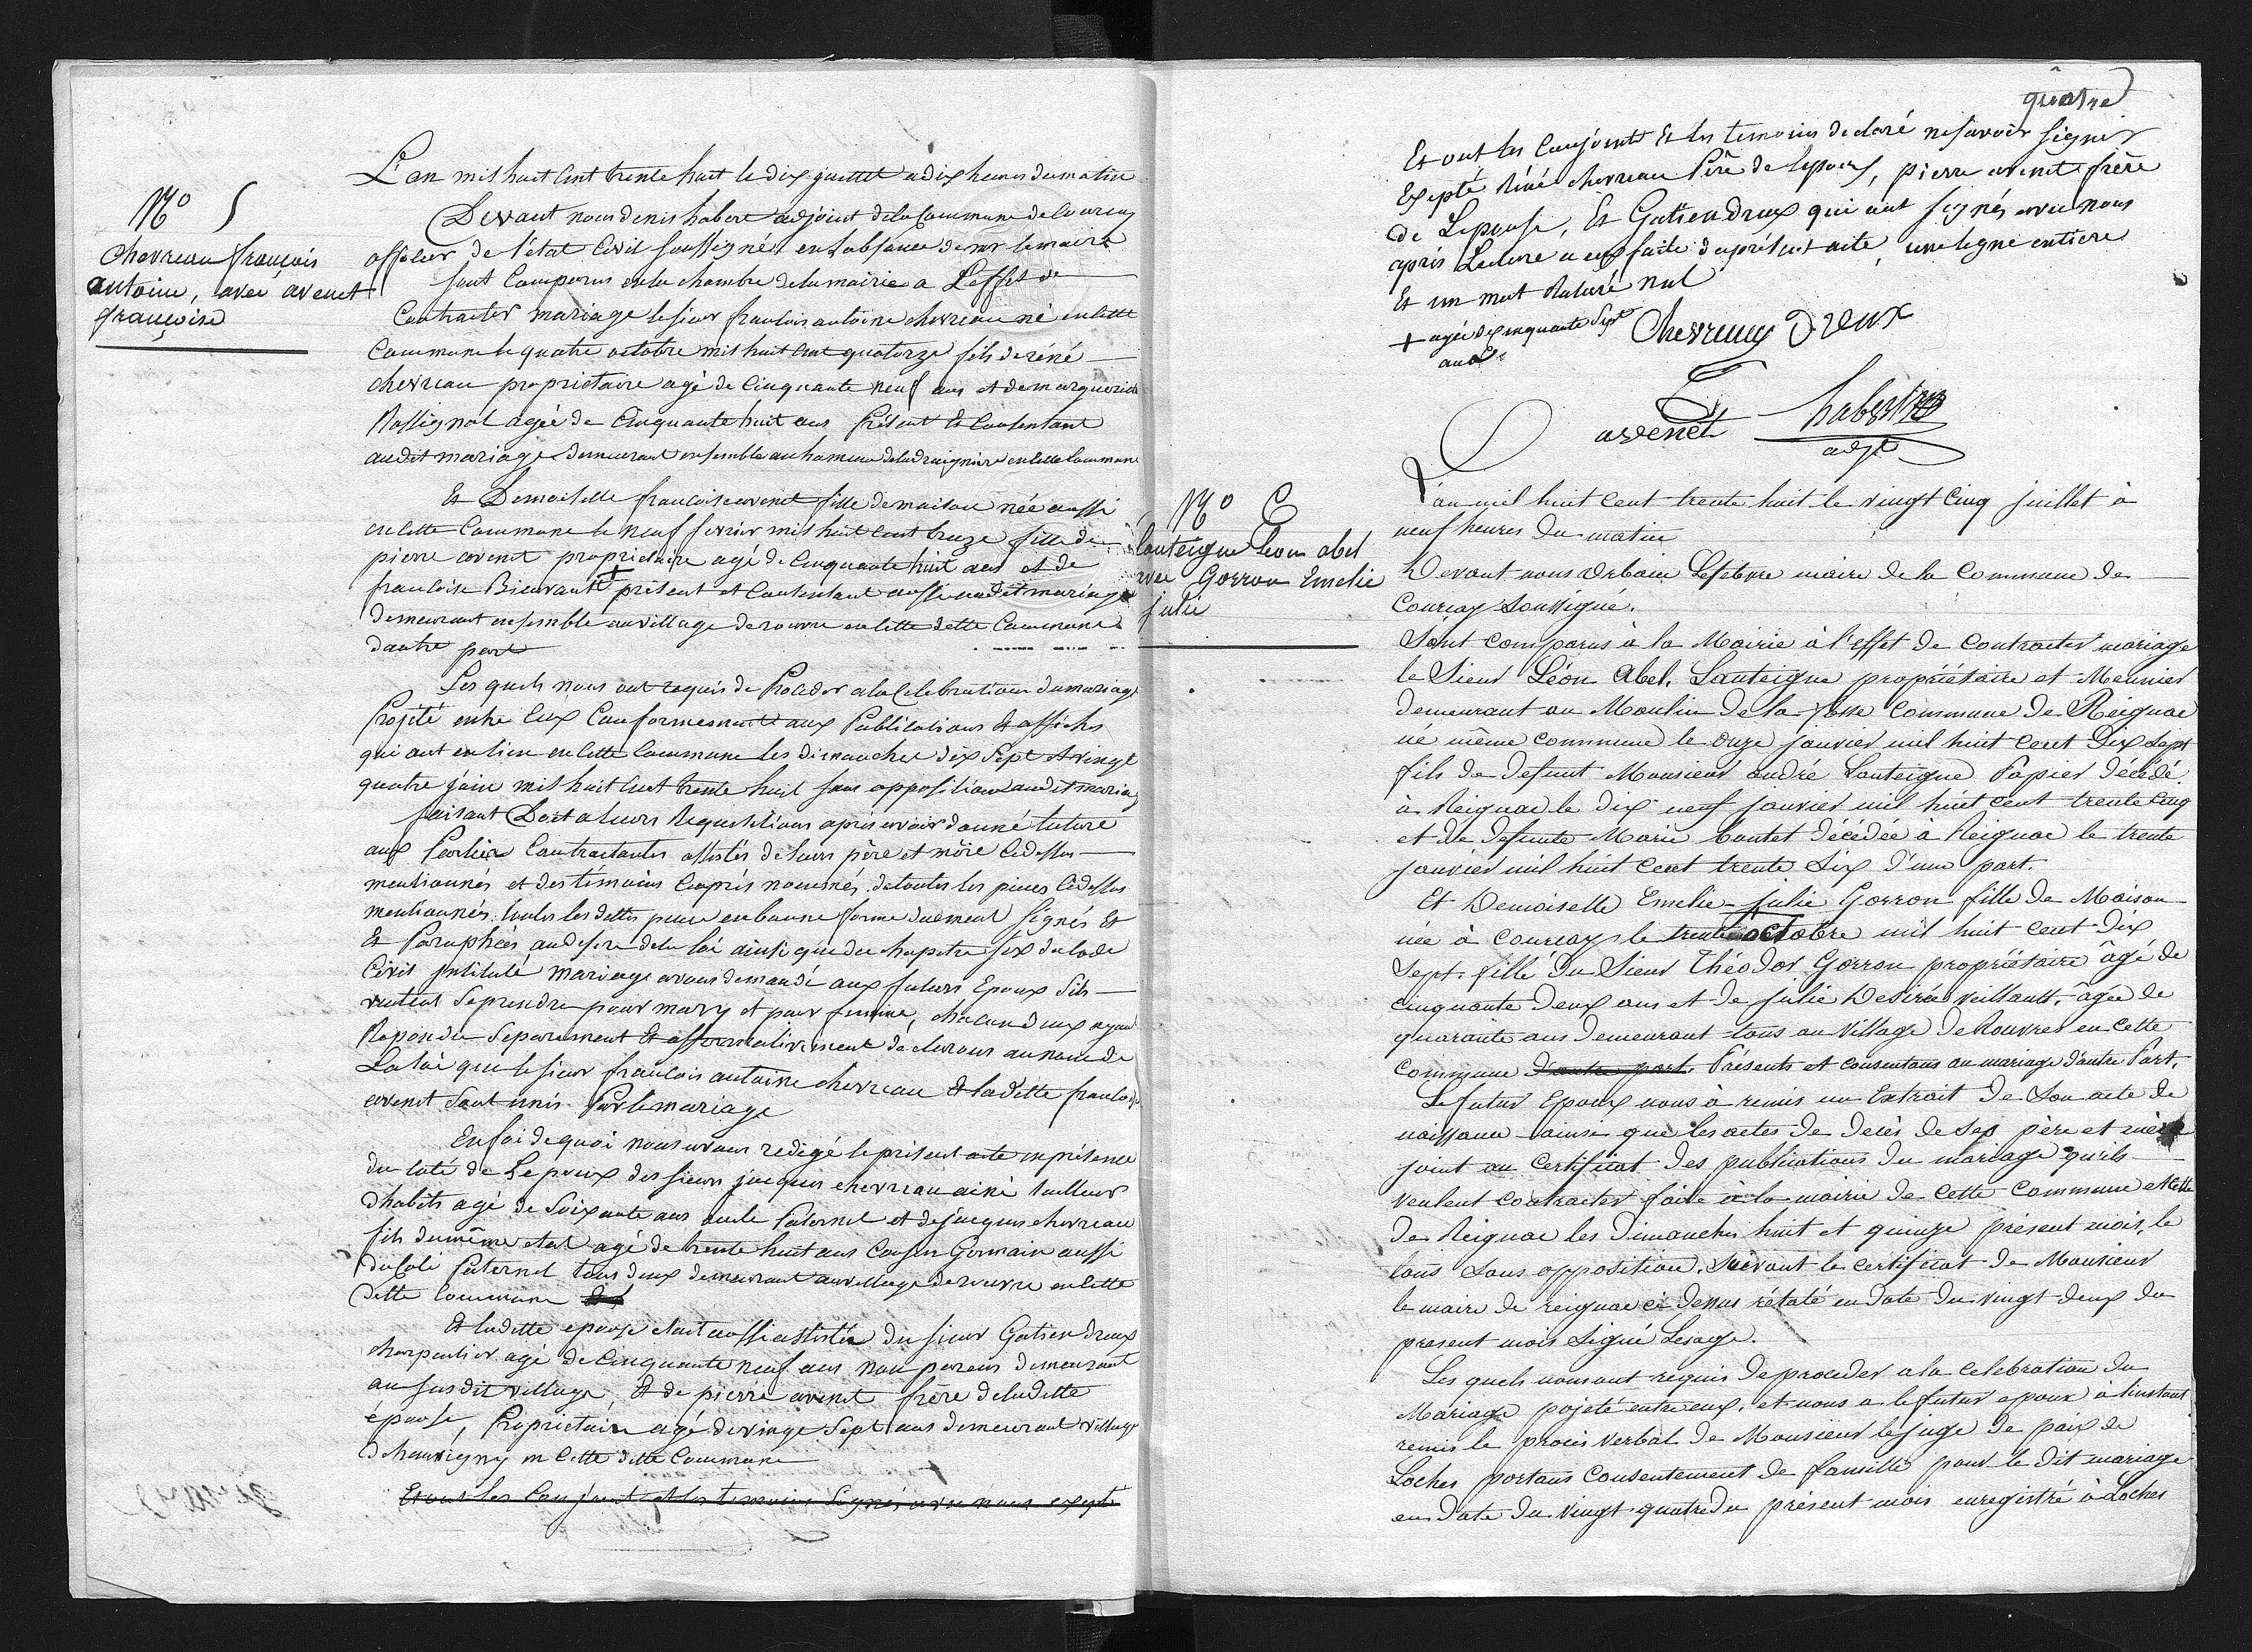 No 5
Chevreau françois
antoine, avec avenet
françoise
L'an mil huit cent trente huit le dix juillet a dix heures du matin
Devant nous denis habert adjoint de la Commune de Courcay
officier de l'état Civil soussigné en Labsance de mr lemaire
sont Comparus en la chambre de la mairie a L'effet de
Contracter mariage le sieur francois antoine chevreau né en cette
Commune le quatre octobre mil huit cent quatorze fils de réné
chevreau propriétaire agé de Cinquante neuf ans et de marguerite
Rossignol agée de Cinquante huit ans Présent Et Consentant
audit mariage demeurant ensemble au hameau de la draignière en cette Commune
Et Demoiselle francoise avenet fille de maison née aussi
en Cette Commune le neuf fevrier mil huit cent treize fille de
pierre avenet propriétaire agé de Cinquante huit ans et de
francoise Bienvault + présent et Consentant aussi audit mariage
demeurant ensemble au village de rouvre en Cette dette Commune
dautre part
Les quels nous ont requis de Procéder a la Célébration du mariage
Projété entre Eux Conformement aux Publications Et affiches
qui ont eu lieu en Cette Commune les dimanches dix Sept et vingt
quatre juin mil huit Cent trente huit sans opposition audit mariag
faisant Droit a leurs Requisitions après avoir donné lecture
aux Parties Contractantes assistés de leurs père et mère Cidessus
mentionnés et des témoins Ciaprès nommés de toutes les pieces Cidessus
mentionnés. toutes les dettes piece en bonne forme duement signés Et
Et Paraphées au desire de la loi ainsi que du chapitre six du Code
Civil intitulé mariage avons demandé aux futurs Epoux Sils
veulent Seprendre pour mary et pour femme, chacun d'eux ayant
Repondu Séparement Et affirmativement déclarons au nom de
La loi que le sieur francois antoine chevreau Et la dette francoise
avenet sont unis Par le mariage
En foi de quoi nous avons redigé le présent acte en présence
du coté de Lepoux des sieurs jacques chevreau ainé tailleur
d'habits agé de Soixante ans oncle Paternel et de jacques chevreau
fils du même etat agé de trente huit ans Cousin Germain aussi
du Coté Paternel tous deux demeurant au village de rouvre en Cette
dette Commune
Et la dette epouse etait aussi assistée du sieur Gatien dreux
charpentier agé de Cinquante neuf ans non parens demeurant
au susdit village Et de pierre avenet frère de la dette
épouse, Propriétaire agé de vingt Sept ans demeurant village
de chauvigny en Cette dette Commune
Et ont les Conjoints et les témoins Signés avec nous excepté
quatre
Et ont les Conjoints Et les temoins declaré ne savoir signer
Excepté Réné chevreau Père de lepoux, pierre avenet frère
de Lepouse, Et Gatien dreux qui ont signés avec nous
après Lecture a eux faite du présent acte, une ligne entiere
Et un mot Raturé nul
+ agée de cinquante Sept
ans
Chevreau Dreux
avenet habert
adjt
No 6
Lanteigne Léon abel
avec Gorron Emelie
julie
L'an mil huit cent trente huit le vingt cinq juillet à
neuf heures du matin
Devant nous Urbain Lefebvre maire de la Commune de
Courcay Soussigné.
Sont comparus à la Mairie à l'effet de Contracter mariage
le Sieur Léon Abel Lanteigne propriétaire et Meunier
demeurant au Moulin de la fosse Commune de Reignac
né même commune le onze janvier mil huit cent Dix Sept
fils de defunt Monsieur André Lanteigne Papier décédé
à Reignac le dix neuf janvier mil huit cent trente cinq
et de defunte Marie boutet décédée à Reignac le trente
janvier mil huit cent trente Six d'une part.
Et Demoiselle Emelie-Julie Gorron fille de Maison
née à Courcay le trente octobre mil huit cent dix
Sept. fille du Sieur Théodor Gorron propriétaire âgé de
cinquante deux ans et de Julie Désirée veillault, âgée de
quarante ans demeurant tous au Village de Rouvres en cette
Commune d'autre part. Présents et consentans au mariage d'autre Part.
Le futur Epoux nous à remis un Extrait de Son acte de
naissance ainsi que les actes de décès de ses père et mère
joint au Certificat des publications du mariage qu'ils
veulent contracter faite à la mairie de cette Commune et celle
de Reignac les dimanches huit et quinze présent mois, le
tous sans opposition. Suivant le certificat de Monsieur
le maire de reignac ci dessus rélaté en date du vingt deux du
present mois signé Lesage.
Les quels nous ont requis de proceder a la celebration du
Mariage pojeté entre eux, et nous a le futur epoux à l'instant
remis le procès verbal de Monsieur le juge de paix de
Loches portans Consentement de famille pour le dit mariage
en date du vingt quatre du présent mois enregistré à Loches